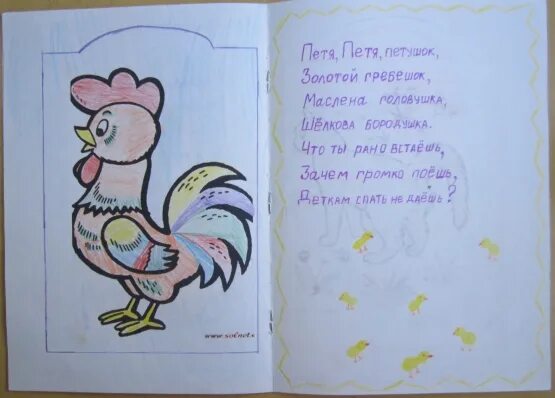 www.solnet.e
Петя, Петя, петушок,
Золотой гребешок,
Маслена головушка,
Шёлкова бородушка.
Что ты рано встаёшь,
Зачем громко поёшь,
Деткам спать не даёшь?